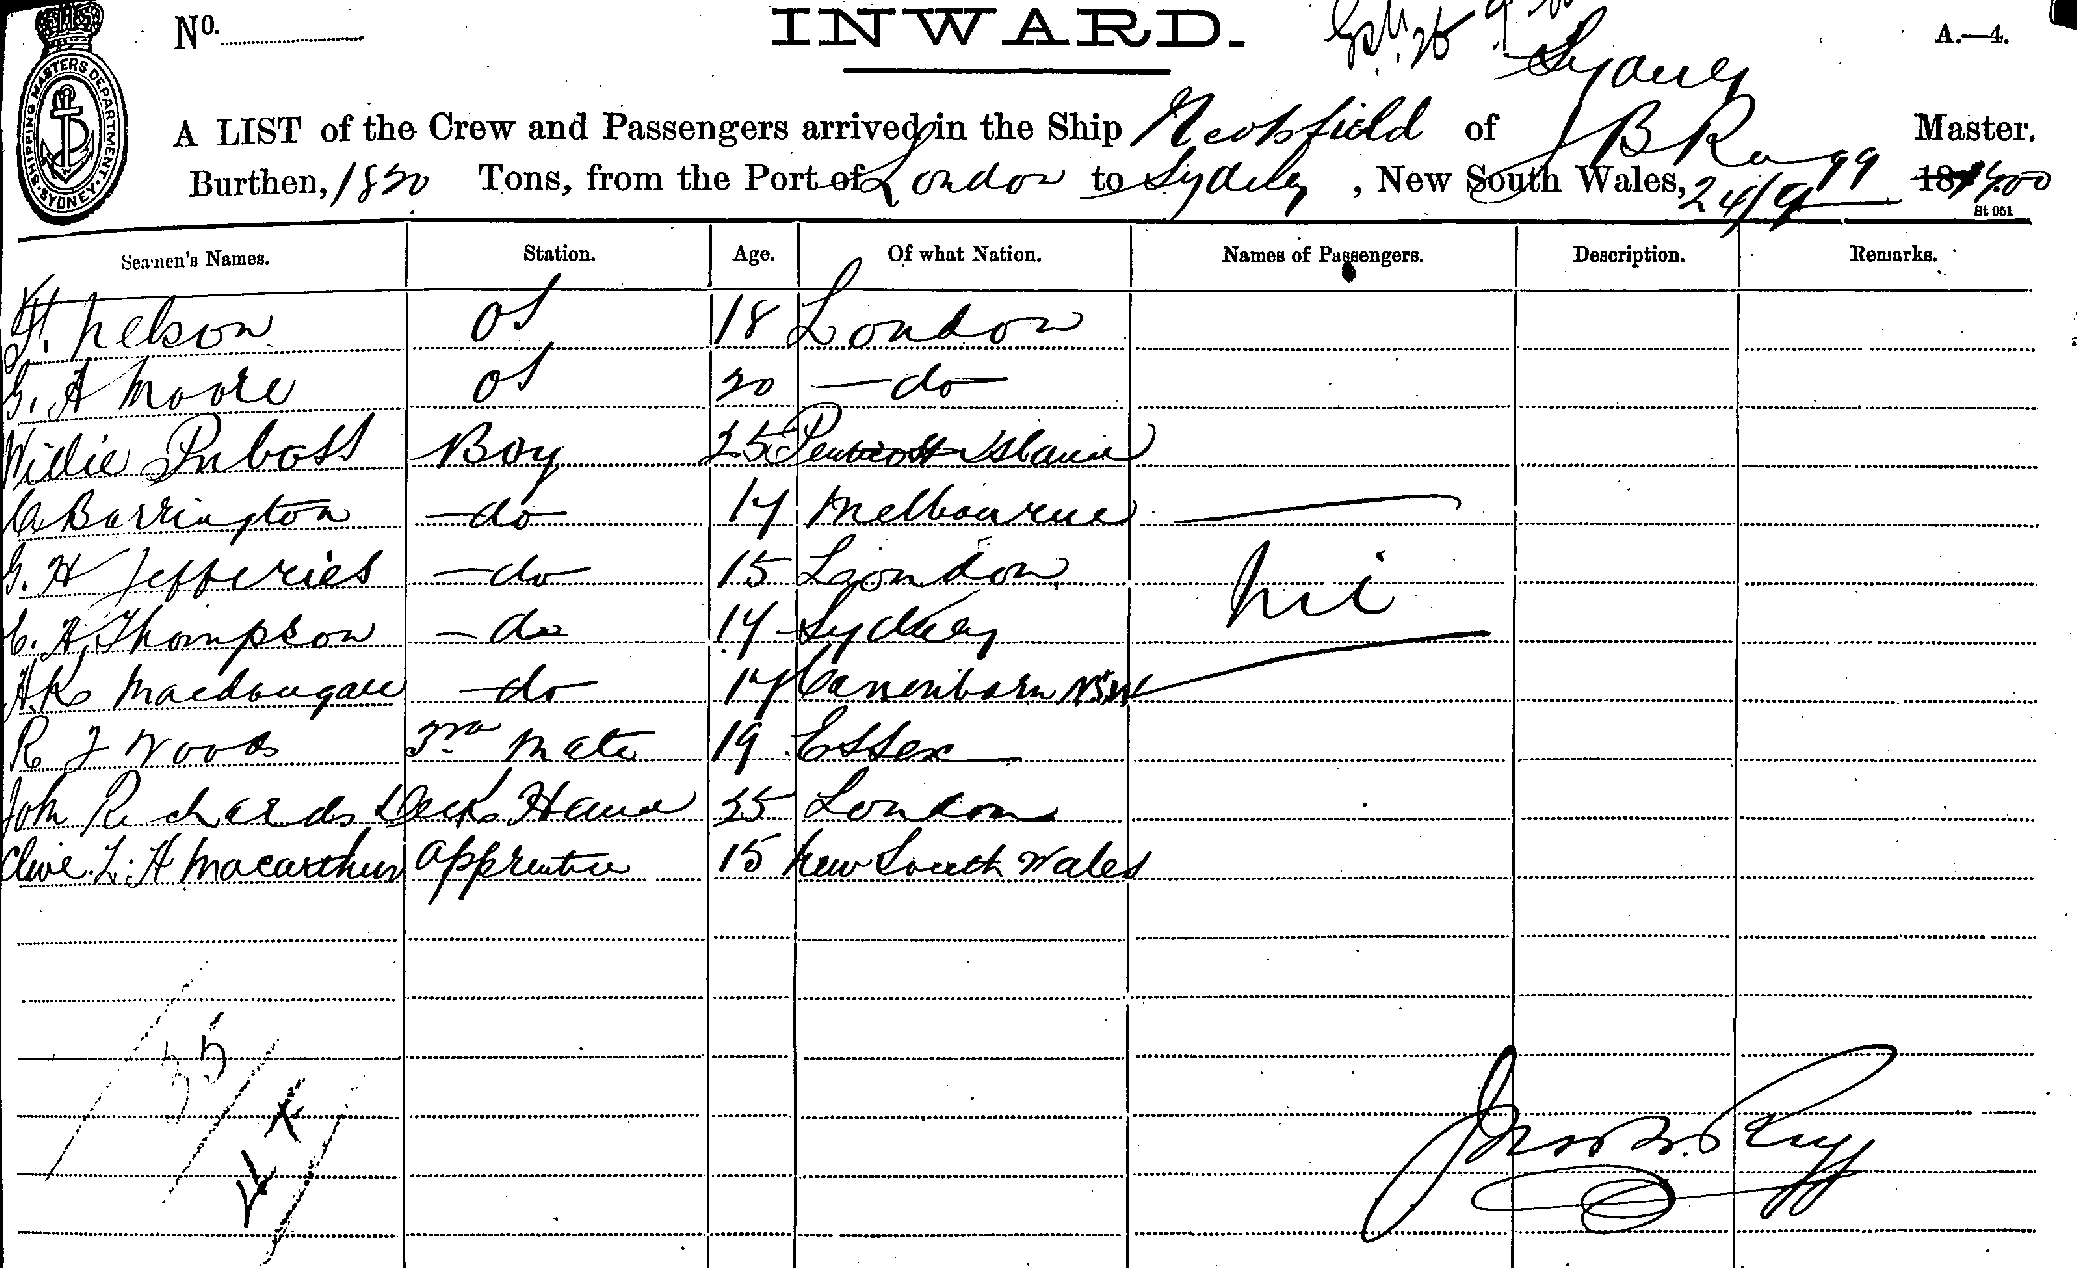 No.
INWARD.
A.—4.
Sydney
A LIST of the Crew and Passengers arrived in the Ship Neotsfield of J B Rugg Master.
Burthen, 1820 Tons, from the Port of London to Sydney, New South Wales, 24/9 1900
St 051
SHIPPING MASTERS DEPARTMENT. SYDNEY.
Seamen's Names. Station. Age. Of what Nation. Names of Passengers. Description. Remarks.
H. Nelson OS 18 London
G. A Moore OS 20 — do —
Willie Boy 25 Pentecost Island
C Barrington — do — 17 Melbourne
G. H Jefferies — do — 15 London
C. A. Thompson — do 17 Sydney
A. K. Macdougall — do 17 NSW
nil
R J Woods 3rd Mate 19 Essex
John Richards Deck Hand 25 London
Clive. L. H Macarthur Apprentice 15 New South Wales
35
Jno B. Rugg